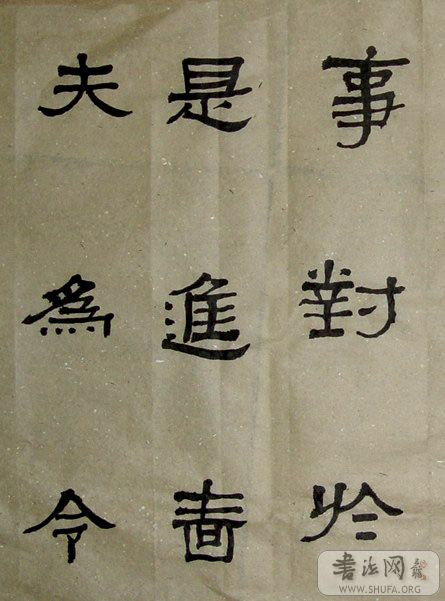 事對於
是進嗇
夫為令
書法网
WWW.SHUFA.ORG